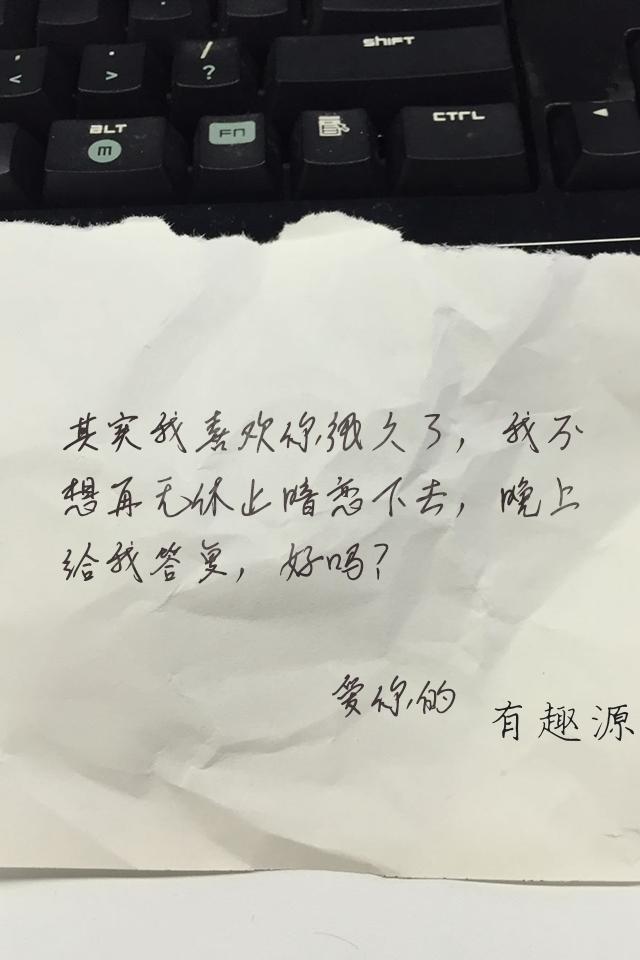 <
>
/
?
SHIFT
ALT
M
FN
CTRL
其实我喜欢你很久了，我不
想再无休止暗恋下去，晚上
给我答复，好吗？
爱你的
有趣源